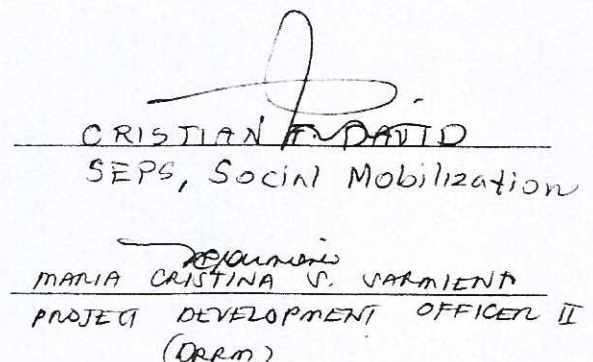 CRISTIAN F. DAVID
SEPS, Social Mobilization
MARIA CRISTINA S. SARMIENTO
PROJECT DEVELOPMENT OFFICER II
(DRRM)